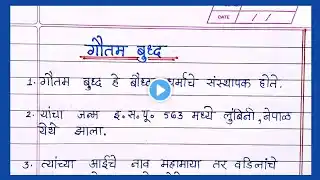 DATE
गौतम बुध्द
1. गौतम बुध्द हे बौध्द धर्माचे संस्थापक होते.
2. यांचा जन्म इ.स.पू. 563 मध्ये लुंबिनी, नेपाळ
येथे झाला.
3. त्यांच्या आईचे नाव महामाया तर वडिलांचे